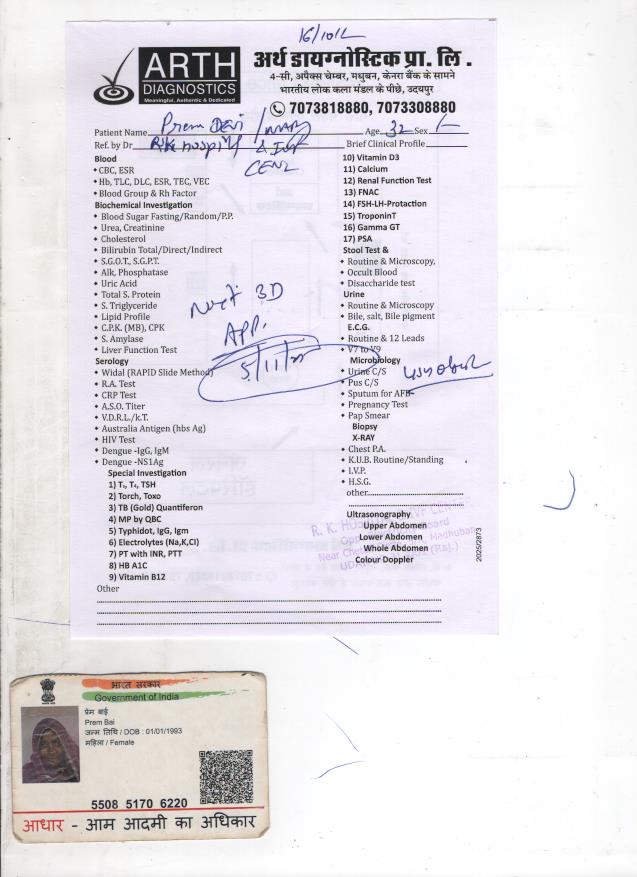 16/10/
ARTH
DIAGNOSTICS
Meaningful, Authentic & Dedicated
अर्थ डायग्नोस्टिक प्रा. लि .
4-सी, अपैक्स चेम्बर, मधुबन, केनरा बैंक के सामने
भारतीय लोक कला मंडल के पीछे, उदयपुर
7073818880, 7073308880
Patient Name Prem Devi / Age 32 Sex F
Ref. by Dr. RK Hospital & IVF Brief Clinical Profile
Blood
CBC, ESR
Hb, TLC, DLC, ESR, TEC, VEC
Blood Group & Rh Factor
Biochemical Investigation
Blood Sugar Fasting/Random/P.P.
Urea, Creatinine
Cholesterol
Bilirubin Total/Direct/Indirect
S.G.O.T., S.G.P.T.
Alk, Phosphatase
Uric Acid
Total S. Protein
S. Triglyceride
Lipid Profile
C.P.K. (MB), CPK
S. Amylase
Liver Function Test
Serology
Widal (RAPID Slide Method)
R.A. Test
CRP Test
A.S.O. Titer
V.D.R.L./k.T.
Australia Antigen (hbs Ag)
HIV Test
Dengue -IgG, IgM
Dengue -NS1Ag
Special Investigation
1) T₃, T₄, TSH
2) Torch, Toxo
3) TB (Gold) Quantiferon
4) MP by QBC
5) Typhidot, IgG, Igm
6) Electrolytes (Na,K,Cl)
7) PT with INR, PTT
8) HB A1C
9) Vitamin B12
Other
10) Vitamin D3
11) Calcium
12) Renal Function Test
13) FNAC
14) FSH-LH-Protaction
15) TroponinT
16) Gamma GT
17) PSA
Stool Test &
Routine & Microscopy,
Occult Blood
Disaccharide test
Urine
Routine & Microscopy
Bile, salt, Bile pigment
E.C.G.
Routine & 12 Leads
V7 to V9
Microbiology
Urine C/S
Pus C/S
Sputum for AFB
Pregnancy Test
Pap Smear
Biopsy
X-RAY
Chest P.A.
K.U.B. Routine/Standing
I.V.P.
H.S.G.
other
Ultrasonography
Upper Abdomen
Lower Abdomen
Whole Abdomen
Colour Doppler
Next 3D
App.
5/11/25
2025/2873
भारत सरकार
Government of India
प्रेम बाई
Prem Bai
जन्म तिथि / DOB : 01/01/1993
महिला / Female
5508 5170 6220
आधार - आम आदमी का अधिकार